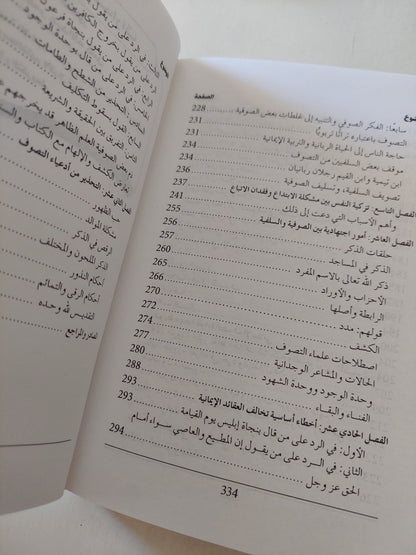 الموضوع
الصفحة
سابعًا: الفكر الصوفي والتنبيه إلى غلطات بعض الصوفية 228
التصوف باعتباره تراثًا تربويًا 231
حاجة الناس إلى الحياة الربانية والتربية الإيمانية 231
موقف بعض السلفيين من التصوف 234
ابن تيمية وابن القيم رجلان ربانيان 234
تصويف السلفية، وتسليف الصوفية 236
الفصل التاسع: تزكية النفس بين مشكلة الابتداع وفقدان الاتباع 237
وأهم الأسباب التي دعت إلى ذلك 241
الفصل العاشر: أمور اجتهادية بين الصوفية والسلفية 255
حلقات الذكر 256
الذكر في المساجد 260
ذكر الله تعالى بالاسم المفرد 265
الأحزاب والأوراد 266
الرابطة وأصلها 270
قولهم: مدد 272
الكشف 274
اصطلاحات علماء التصوف 277
الحالات والمشاعر الوجدانية 280
وحدة الوجود ووحدة الشهود 288
الفناء والبقاء 293
الفصل الحادي عشر: أخطاء أساسية تخالف العقائد الإيمانية 293
الأول: في الرد على من قال بنجاة إبليس يوم القيامة
الثاني: في الرد على من يقول إن المطيع والعاصي سواء أمام
الحق عز وجل 294
334
في الرد على من يقول بخروج الكافرين
الرد على من يقول بنجاة فرعون
في الرد على من قال بوحدة الوجود
التحذير من الشطح والطامات
القول بسقوط التكاليف
التفريق بين الحقيقة والشريعة
ذم بعض الصوفية العلم الظاهر
تعارض الكشف والإلهام مع الكتاب
الفصل الثاني عشر: التحذير من أدعياء التصوف
حب الظهور
مشكلة الموالد
الرقص في الذكر
الذكر الملحون والمختلف
أحكام النذور
أحكام الرقى والتمائم
التقديس لله وحده
المصادر والمراجع